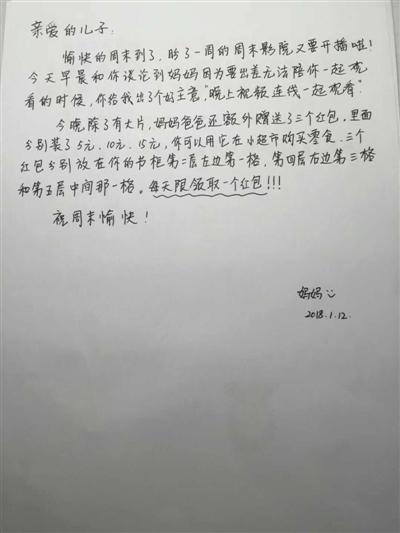 亲爱的儿子:
愉快的周末到了,盼了一周的周末影院又要开播啦!
今天早晨和你谈论到妈妈因为要出差无法陪你一起观
看的时候,你给我出了个好主意,"晚上视频连线一起观看"
今晚除了有大片,妈妈爸爸还额外赠送了三个红包,里面
分别装了5元、10元、15元,你可以用它在小超市购买零食.三个
红包分别放在你的书柜第二层左边第一格,第四层右边第三格
和第五层中间那一格。每天限领取一个红包!!!
祝周末愉快!
妈妈
2018.1.12.